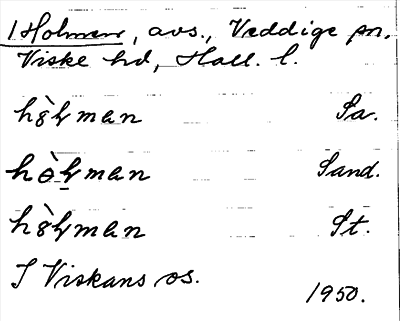 1 Holmen, avs., Veddige sn.
Viske hd, Hall. l.
hò̤ɫman Sa.
hòɫman Sand.
hò̤ɫman St.
I Viskans os.
1950.